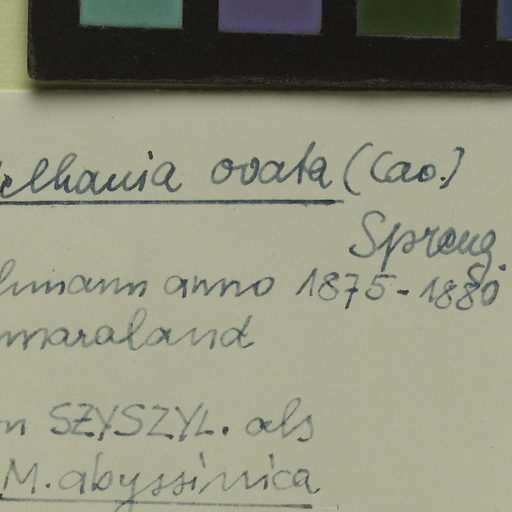 elhania ovata (Cav.)
Spreng.
hmann anno 1875-1880
maraland
n SZYSZYL. als
M. abyssinica